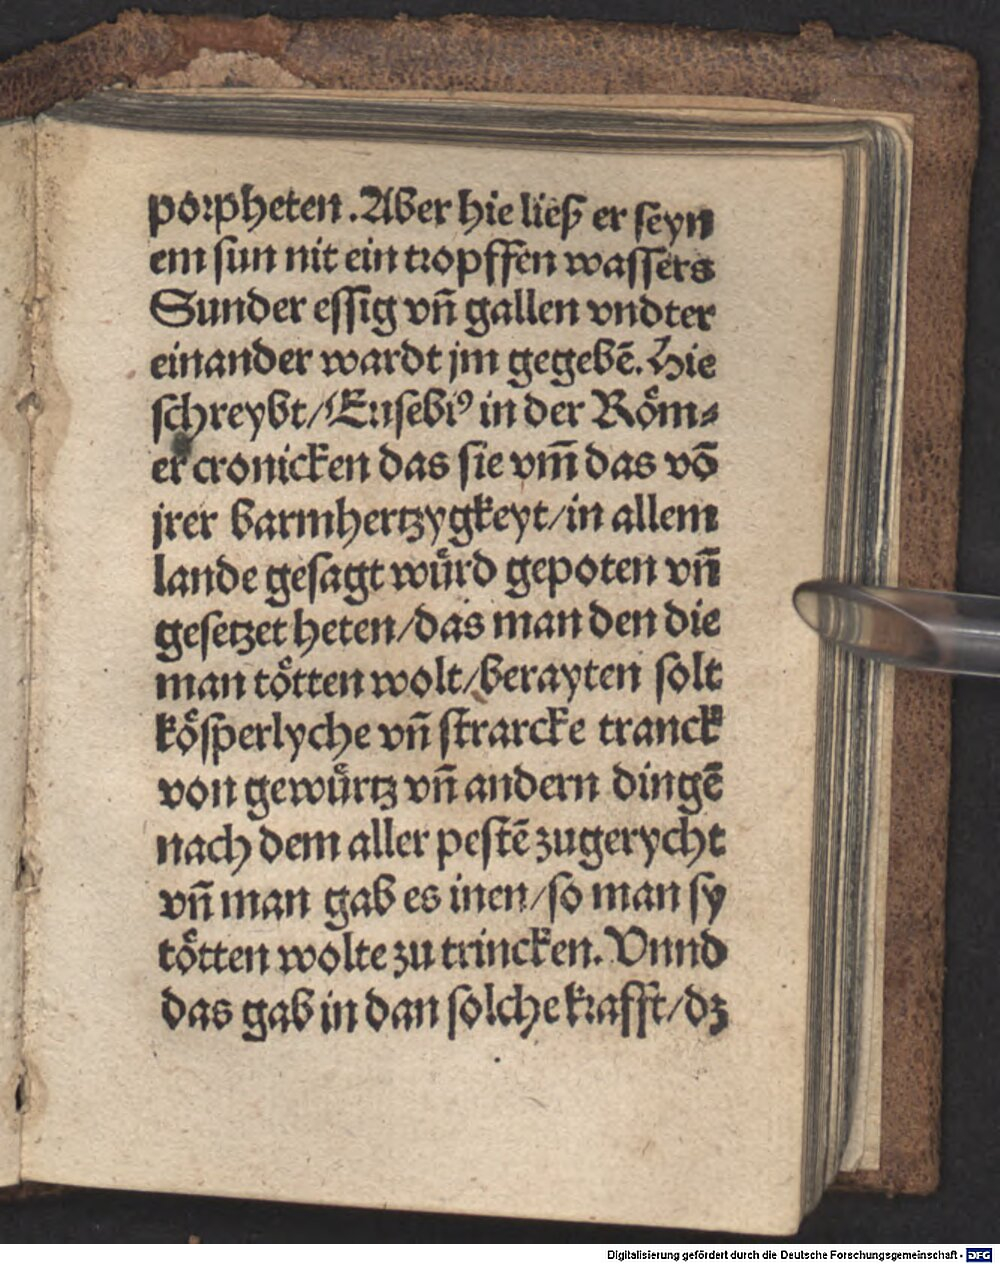 porpheten. Aber hie ließ er seyn
em sun nit ein tropffen wassers
Sunder essig vn̄ gallen vndter
einander wardt jm gegebē. Hie
schreybt/Eusebiꝰ in der Roͤm⸗
er cronicken das sie vm̄ das vō
jrer barmhertzygkeyt/in allem
lande gesagt wuͤrd gepoten vn̄
gesetzet heten/das man den die
man toͤtten wolt/berayten solt
koͤsperlyche vn̄ strarcke tranck
von gewuͤrtz vn̄ andern dingē
nach dem aller pestē zugerycht
vn̄ man gab es inen/so man sy
toͤtten wolte zu trincken. Vnnd
das gab in dan solche krafft/dz
Digitalisierung gefördert durch die Deutsche Forschungsgemeinschaft - DFG